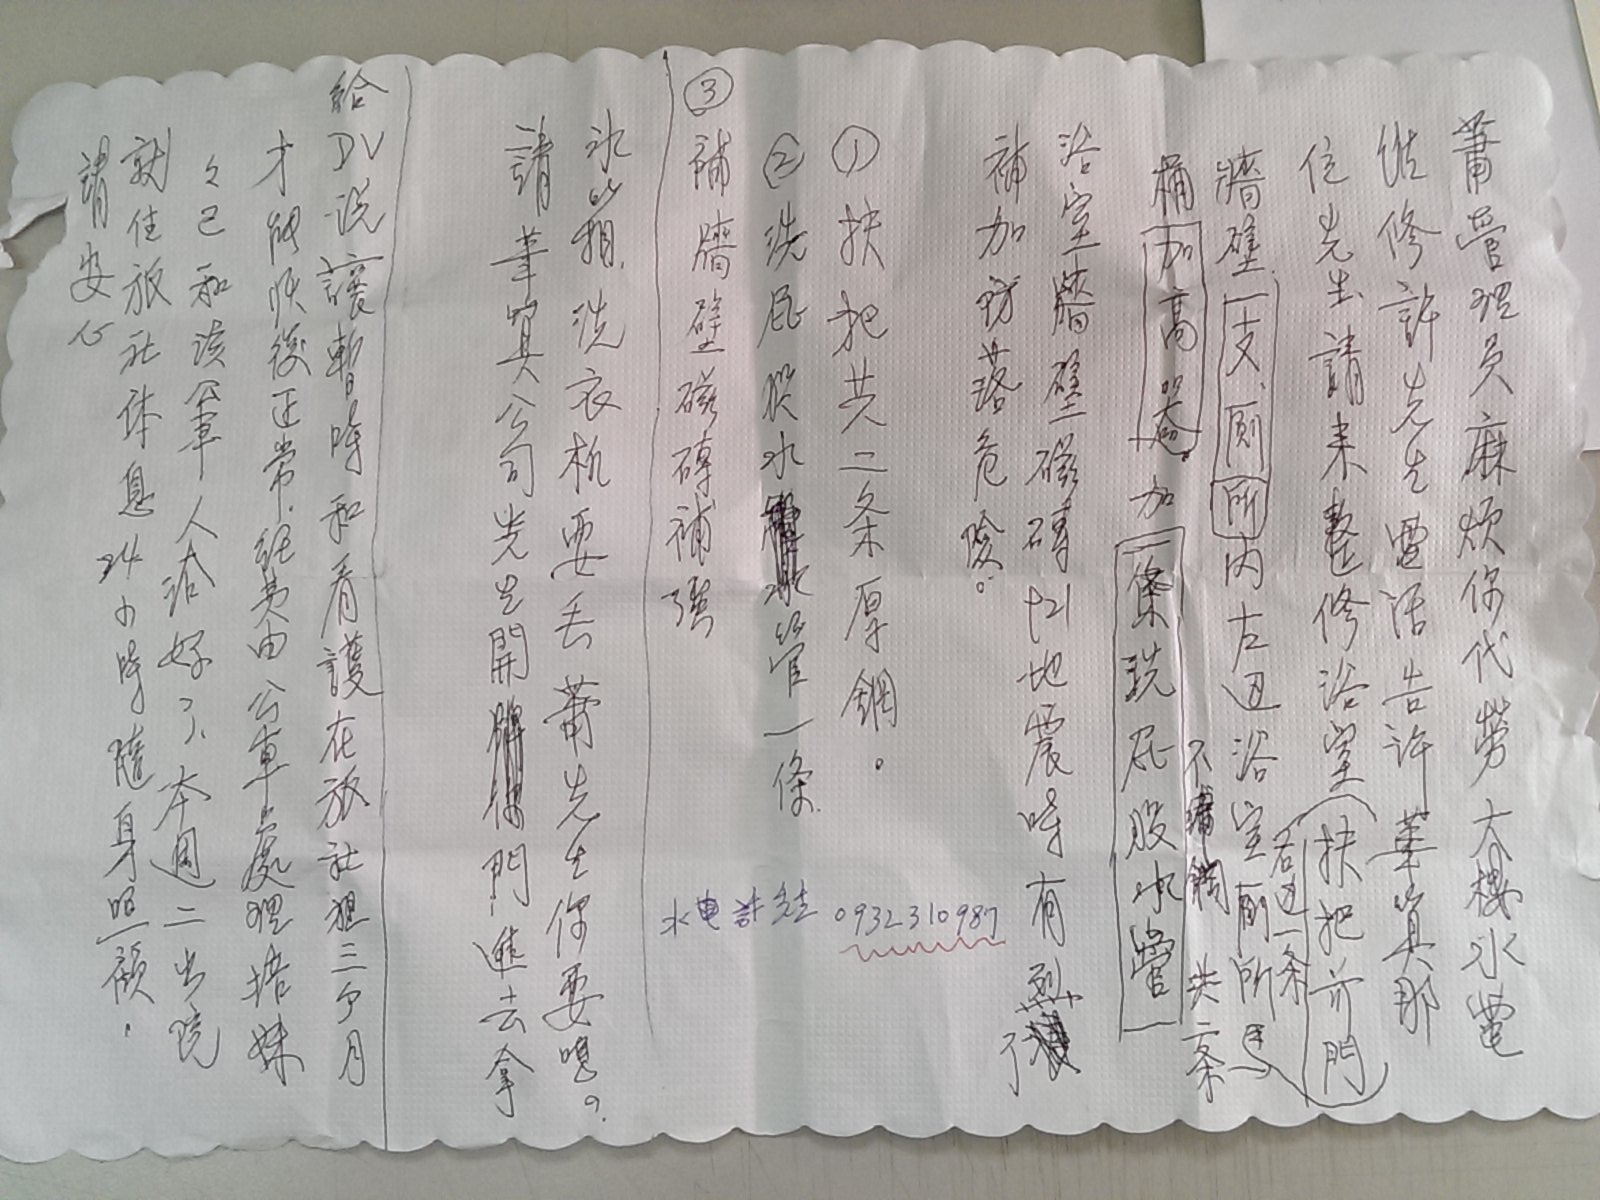 蕭管理员麻烦你代勞大樓水電
维修許先生電话告訴華算那
位先生請来整修浴室扶把亦門
牆壁一支、厠所內左边浴室厠所馬
右边一条
桶加高器加一條洗屁股水管
不 共二条
浴室牆壁磁磚921地震時有裂了
補加強落危險。
①扶把共二条厚鋼。
②洗屁股水管一條
③補牆壁磁磚補强
水電許先生 0932310987
冰箱、洗衣机要丢蕭先生你要嗎?
請華算公司先生開門進去拿
給DV说讓暫時和看護在旅社租三个月
才能恢復正常.經费由公車處理.培妹
々已和该公車人洽好了、本週二出院
就住旅社休息24小時隨身照顧.
請安心